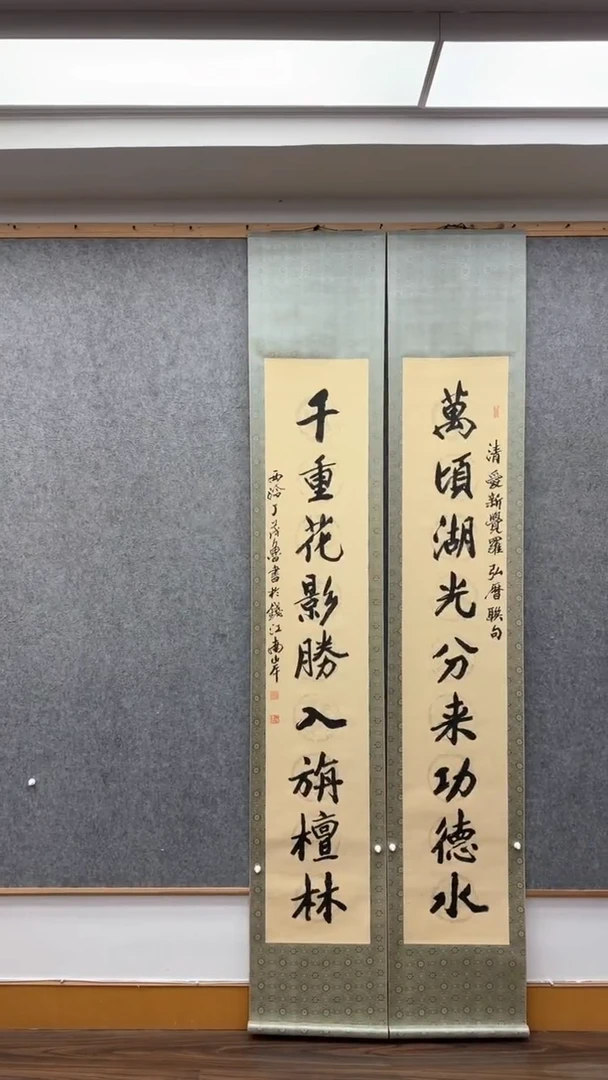 清愛新覺羅弘曆聯句
萬頃湖光分来功德水
千重花影勝入旃檀林
西泠丁茂魯書於錢江南岸